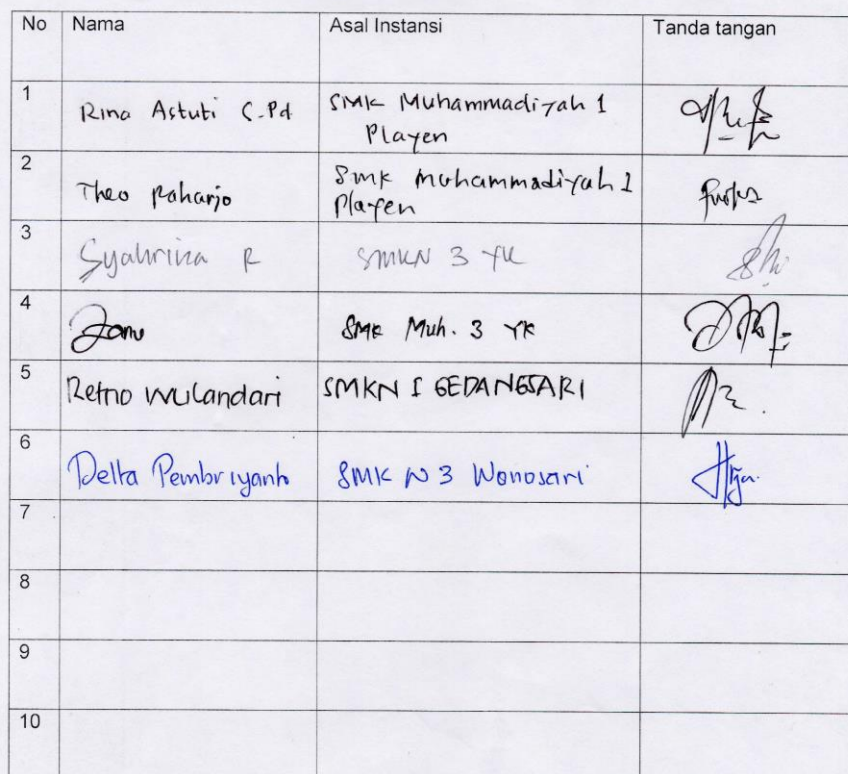 No Nama Asal Instansi Tanda tangan
1 Rina Astuti S.Pd SMK Muhammadiyah 1
Playen
2 Theo Raharjo SMK Muhammadiyah 1
Playen
3 R SMKN 3 YK
4 SMK Muh. 3 YK
5 Retno Wulandari SMKN 1 GEDANGSARI
6 Delta Pembriyanto SMK N 3 Wonosari
7
8
9
10